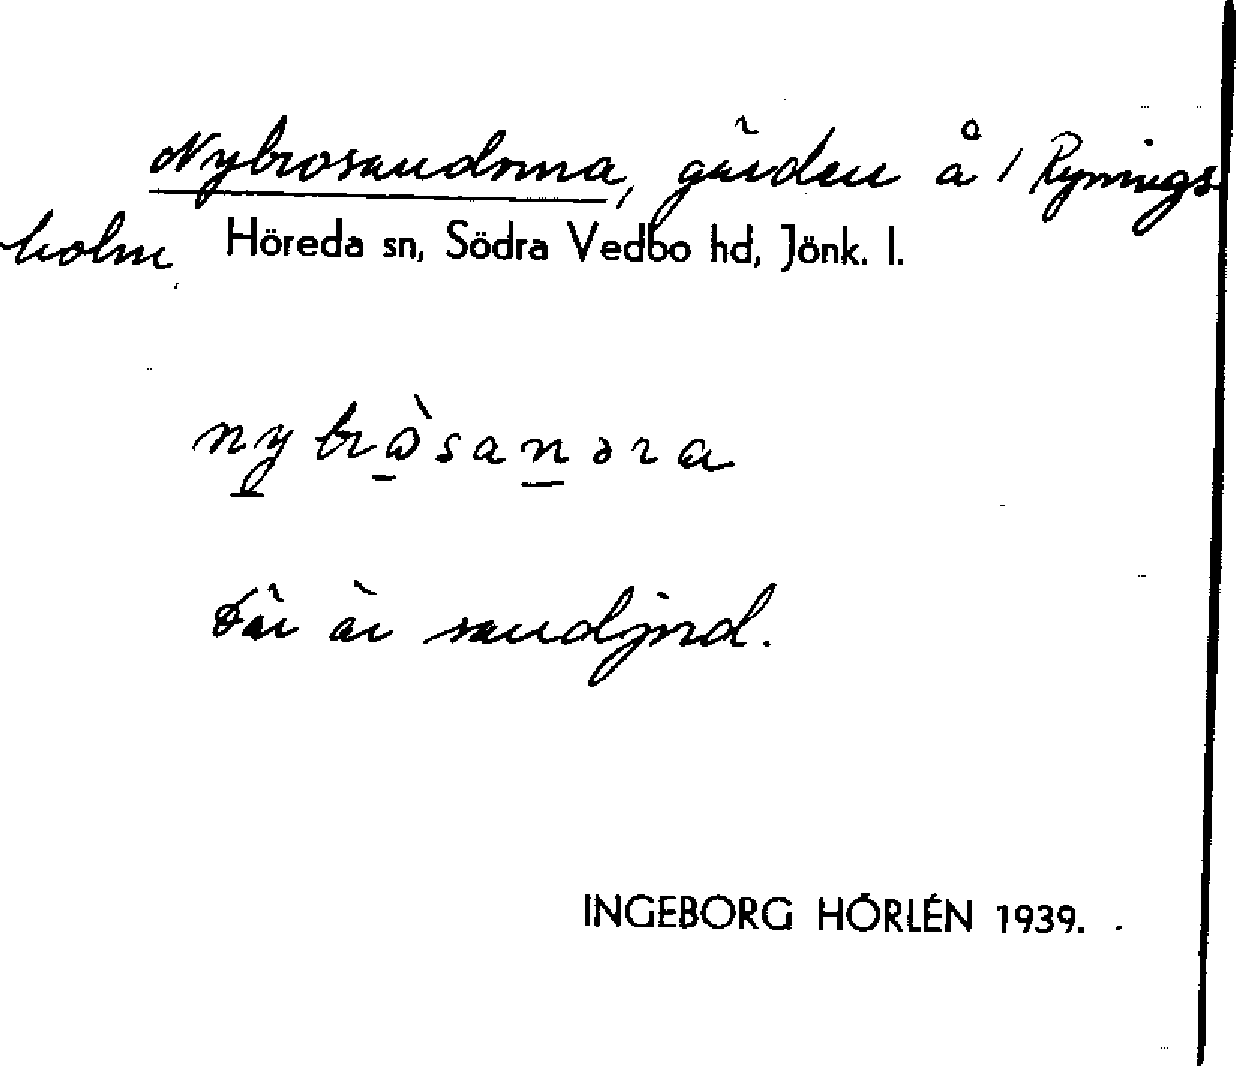 Nybrosandorna, gärden å 1 Rynings-
holm
Höreda sn, Södra Vedbo hd, Jönk. l.
nybròsanəra
Där är sandjord.
INGEBORG HÖRLÉN 1939.